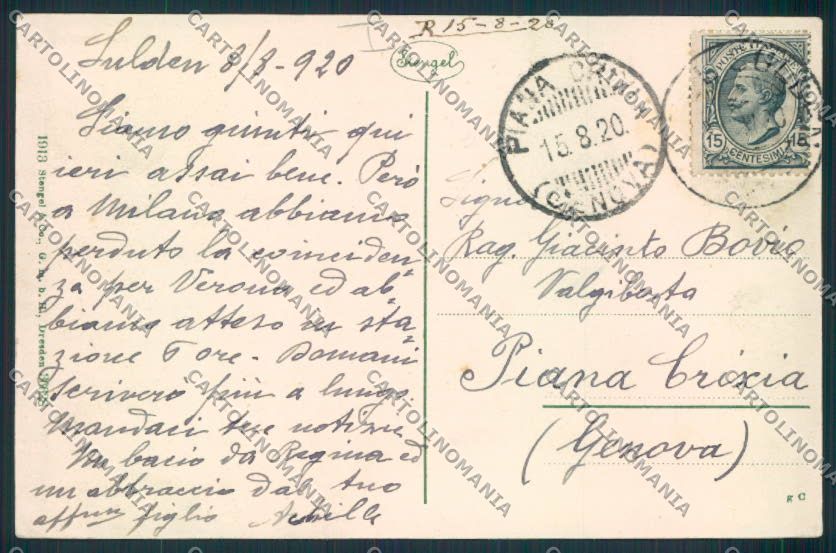 R 15-8-20
Sulden 8/8-920
Stengel
Siamo giunti qui
ieri assai bene. Però
a Milano abbiamo
perduto la coinciden
za per Verona ed ab"
biamo atteso in sta"
zione ore. Domani
scriverò più a lungo
Mandaci tue notizie
Un bacio da Regina ed
un abbraccio dal tuo
affmo figlio Achille
1913 Stengel & Co., G. m. b. H., Dresden
PIANA CRIXIA
15.8.20.
(GENOVA)
POSTE ITALIANE
15 15
CENTESIMI
Rag. Giacinto Bovio
Piana Crixia
(Genova)
g C
CARTOLINOMANIA